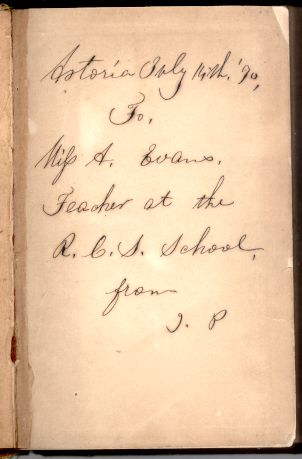 Astoria July 14th. '90,
To,
Miss A. Evans.
Teacher at the
R. C. S. School,
from
J. P